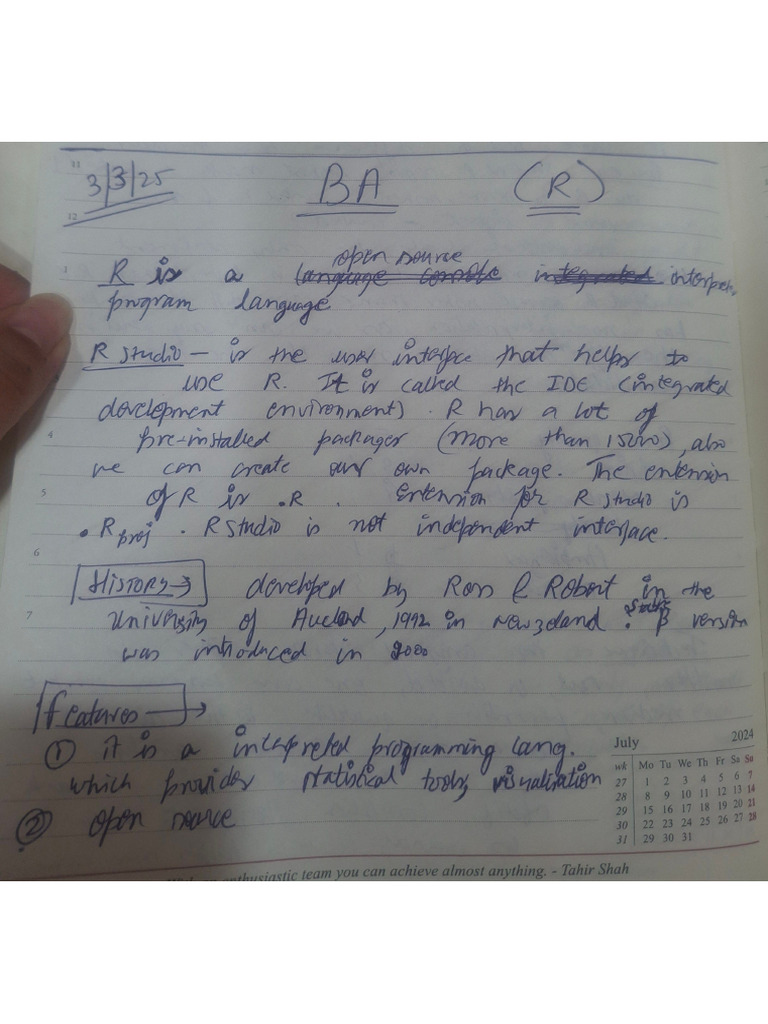 11
3/3/25 BA (R)
12
open source
1 R is a language console integrated interpret
program language
R studio - is the user interface that helps to
use R. It is called the IDE (integrated
development environment). R has a lot of
4 pre-installed packages (more than 15000), also
we can create our own package. The extension
5 of R is .R . extension for R studio is
.Rproj . R studio is not independent interface.
6
History → developed by Ross & Robert in the
7 university of Aucland, 1992 in Newzeland. β version
was introduced in 2000
features →
① it is a interpreted programming lang.
which provides statistical tools, visualisation
② open source
July 2024
wk Mo Tu We Th Fr Sa Su
27 1 2 3 4 5 6 7
28 8 9 10 11 12 13 14
29 15 16 17 18 19 20 21
30 22 23 24 25 26 27 28
31 29 30 31
an enthusiastic team you can achieve almost anything. - Tahir Shah